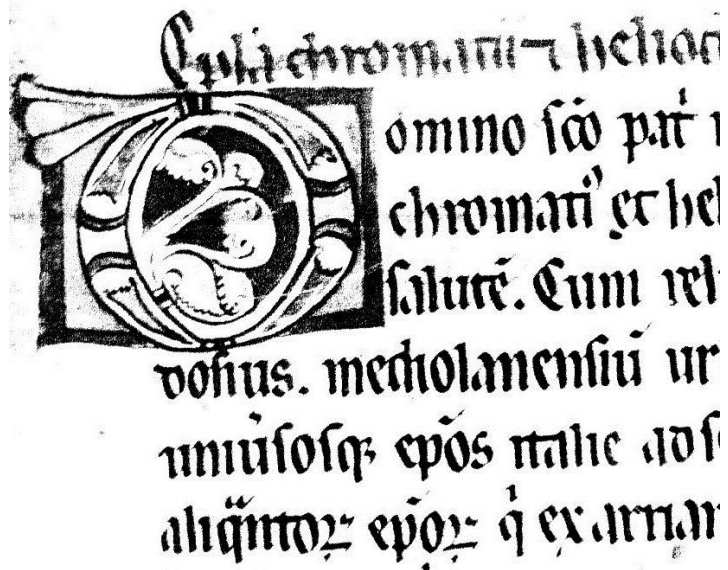 Epła chromatii ⁊ heliod
Domino sc̄o pat̛
chromati᾽ et hel
salutē. Cum reli
dosius. mediolanensiū ur
uniu̾sosq; ep̄os italie ad s
aliq̈ntoꝝ ep̄oꝝ q̇ ex arrian